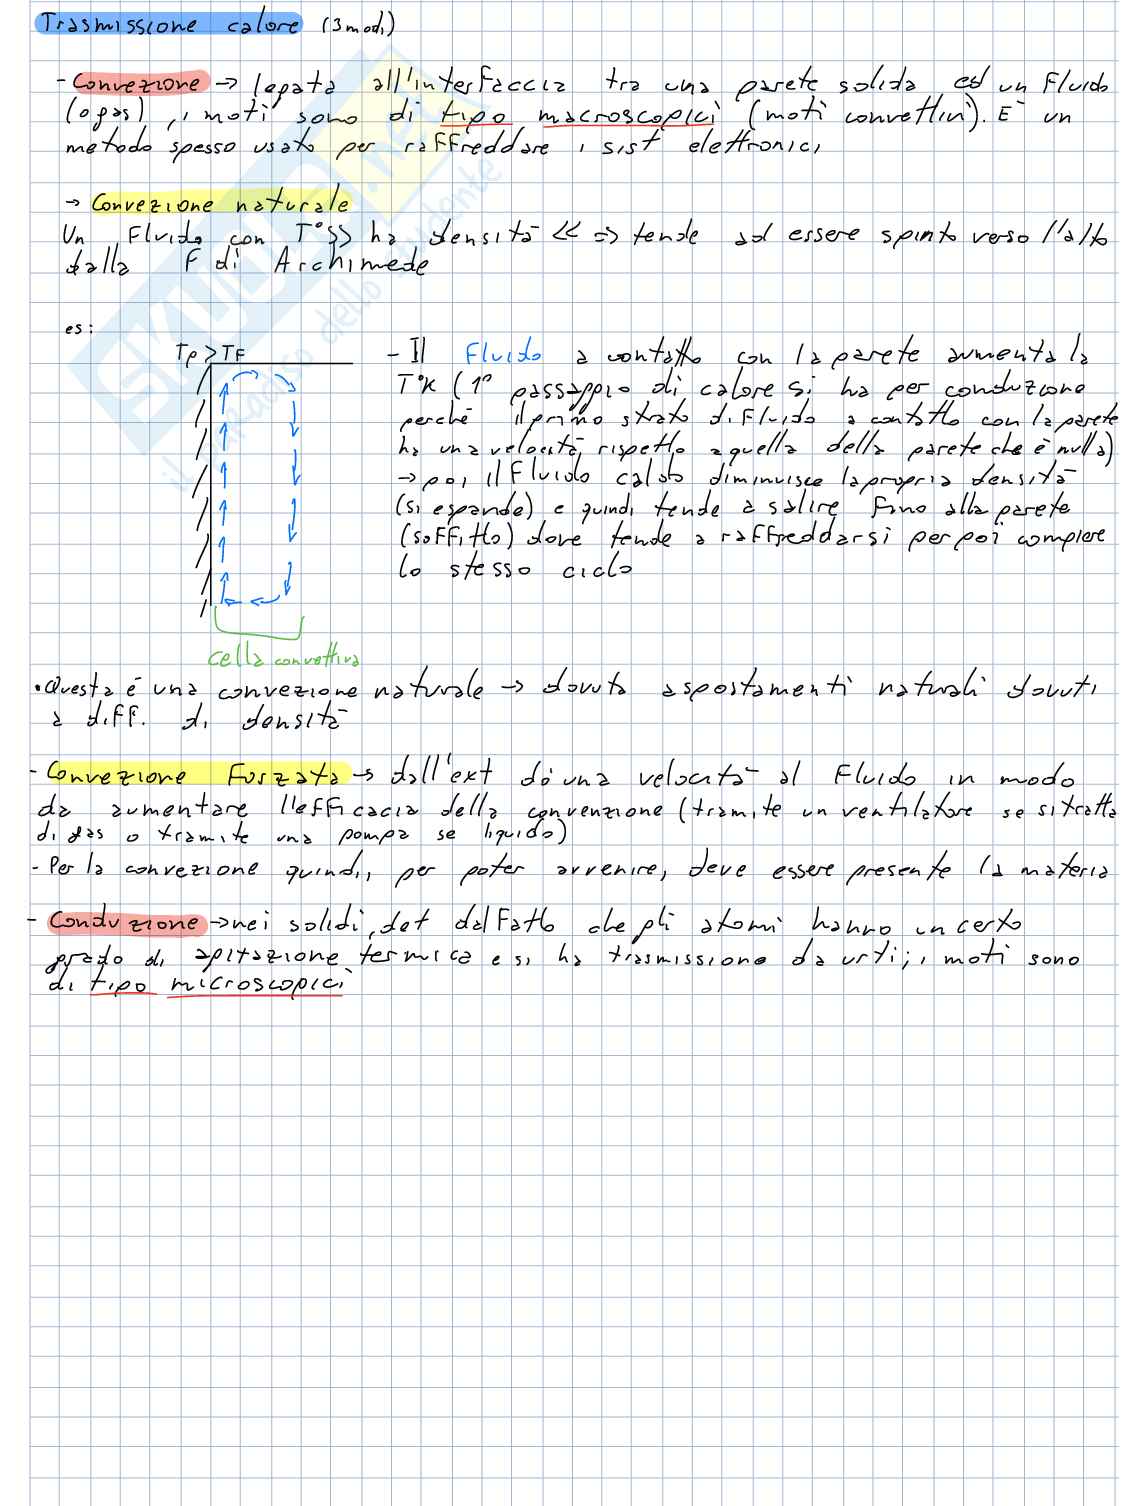 Trasmissione calore (3 modi)
- Convezione → legata all'interfaccia tra una parete solida ed un fluido
(o gas), i moti sono di tipo macroscopici (moti convettivi). È un
metodo spesso usato per raffreddare i sist elettronici
→ Convezione naturale
Un fluido con T°>> ha densità << => tende ad essere spinto verso l'alto
dalla F di Archimede
es:
Tp > TF
- Il fluido a contatto con la parete aumenta la
T°K (1° passaggio di calore si ha per conduzione
perché il primo strato di fluido a contatto con la parete
ha una velocità rispetto a quella della parete che è nulla)
→ poi il fluido caldo diminuisce la propria densità
(si espande) e quindi tende a salire fino alla parete
(soffitto) dove tende a raffreddarsi per poi compiere
lo stesso ciclo
cella convettiva
• Questa è una convezione naturale → dovuta a spostamenti naturali dovuti
a diff. di densità
- Convezione forzata → dall'ext do una velocità al fluido in modo
da aumentare l'efficacia della convenzione (tramite un ventilatore se si tratta
di gas o tramite una pompa se liquido)
- Per la convezione quindi, per poter avvenire, deve essere presente la materia
- Conduzione → nei solidi, det dal fatto che gli atomi hanno un certo
grado di agitazione termica e si ha trasmissione da urti; i moti sono
di tipo microscopici
SKUOLA.net
il paradiso dello studente